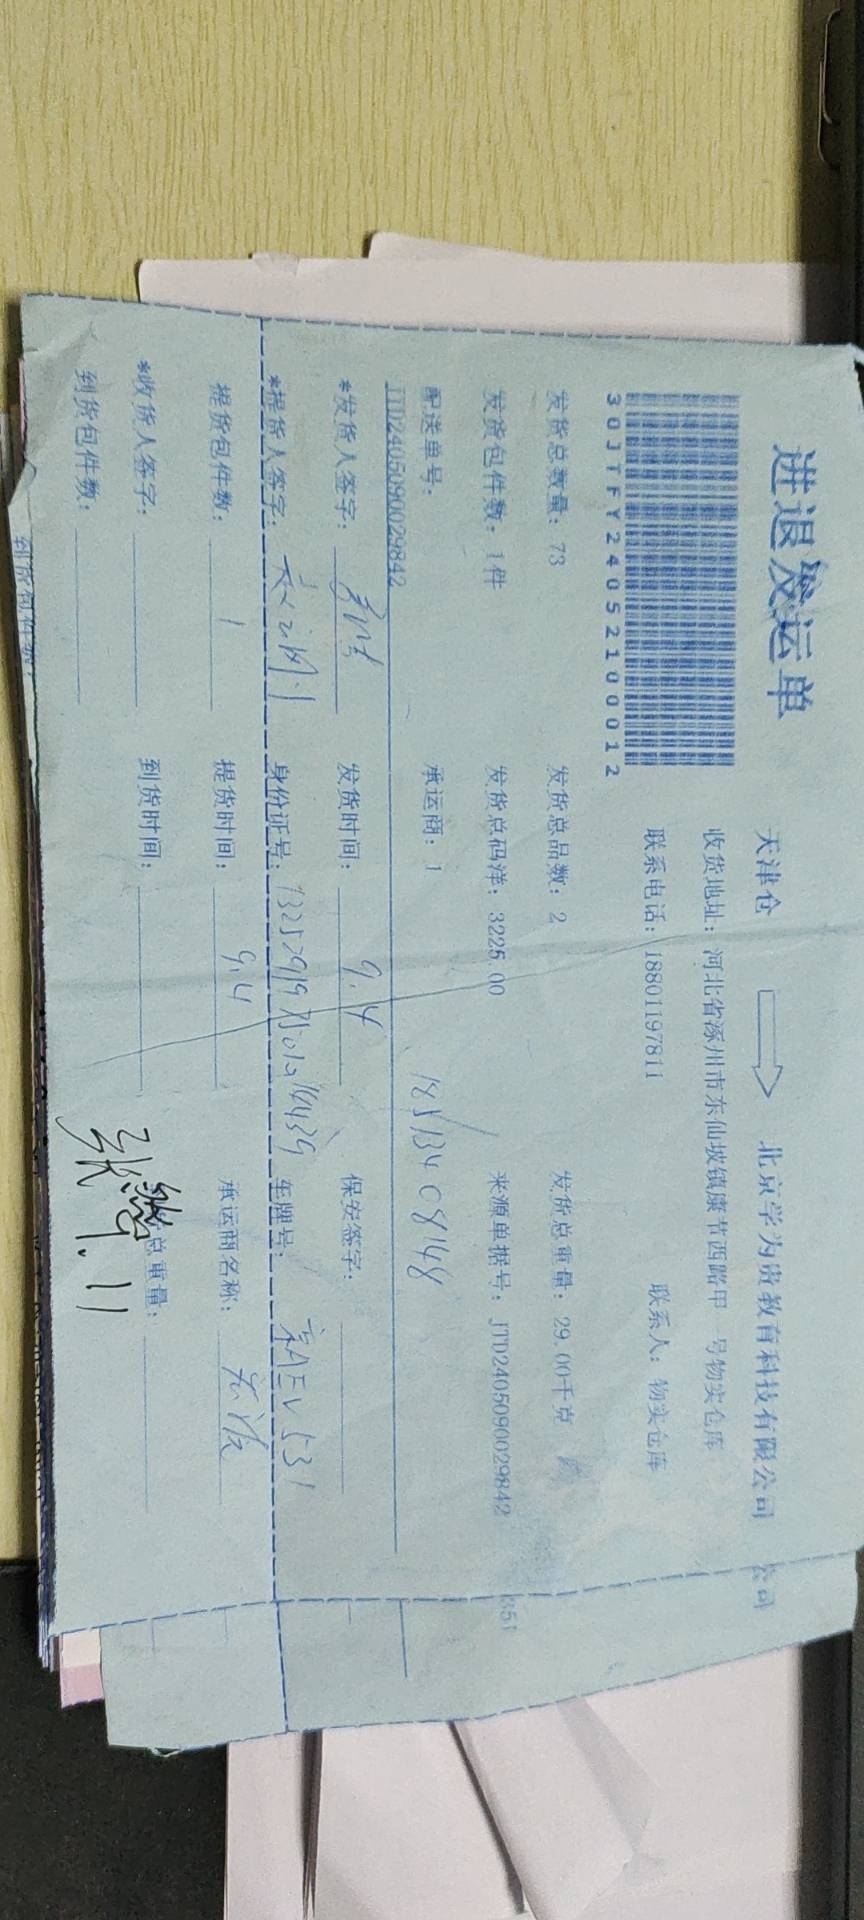 进退发运单
天津仓 北京学为贵教育科技有限公司 公司
收货地址: 河北省涿州市东仙坡镇康节西路甲一号物实仓库
联系电话: 18801197811 联系人: 物实仓库
30JTFY24052100012
发货总数量: 73 发货总品数: 2 发货总重量: 29.00千克
发货包件数: 1件 发货总码洋: 3225.00 来源单据号: JTD2405090029842
351
配送单号: 承运商: 1
JTD2405090029842
*发货人签字: 发货时间: 9.4 保安签字:
*提货人签字: 身份证号: 车牌号:
提货包件数: 1 提货时间: 9.4 承运商名称:
*收货人签字: 到货时间: 总重量:
到货包件数:
到货包件数: